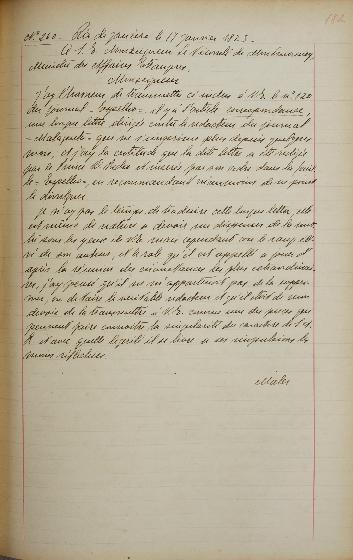 182
Nº 260. Rio de Janeiro le 17 Janvier 1823.
A S. E. Monseigneur le Vicomte de Montmorency,
Ministre des Affaires Etrangères.
Monseigneur
J'ay l'honneur de transmettre ci inclus à V.E. le nº 120
du Journal - Espelho -, il y a l'article correspondance,
une longue lettre dirigée contre le rédacteur du journal
- Malagueta - qui ne s'imprime plus depuis quelques
mois, et j'ay la certitude que la dite lettre a été rédigée
par le Prince D. Pedro et insérée par son ordre dans la
- Espelho -, en recommandant néanmoins de ne point
le divulguer.
Je n'ay pas le temps de traduire cette longue lettre, elle
est même de nature à devoir me dispenser de la
sous les yeux de V.E. mais cependant vu le rang
de son auteur, et le rôle qu'il est appellé à jouer
après la réunion des circonstances les plus extraordinai-
res, j'ay pensé qu'il ne m'appartenait pas de la suppri-
mer, ou de taire le véritable rédacteur et qu'il était de mon
devoir de la transmettre à V.E. comme une des pièces qui
peuvent faire connaître la singularité du caractère de S. A.
R. et avec quelle légèreté il se livre à ses
moins réfléchies.
Maler